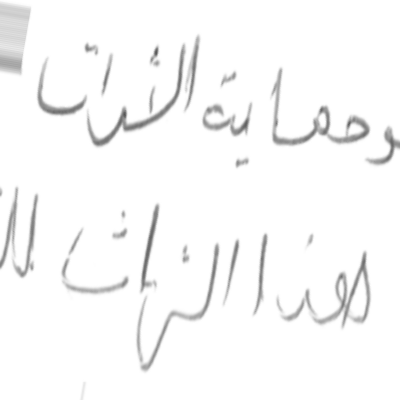 وحماية الأثرات
هذا التراث لل